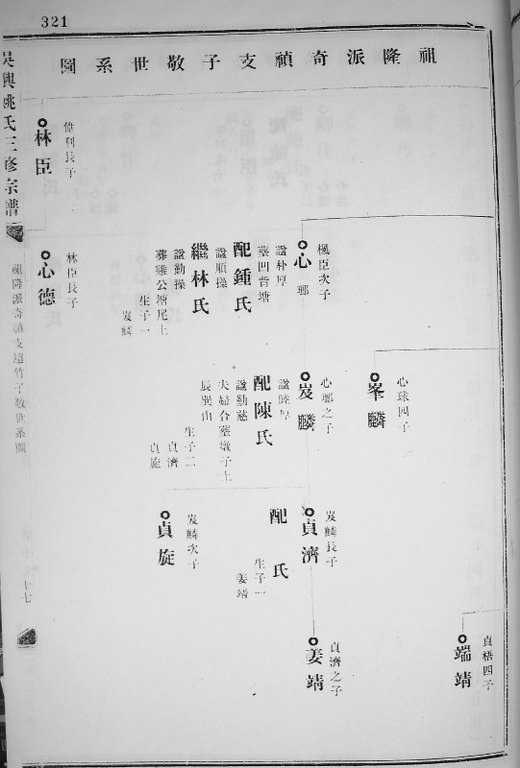 321
祖隆派奇禎支子敬世系圖
端靖
貞梧四子
峯麟
心球四子
心鄉
楓臣次子
諡朴厚
塟凹背塘
配鍾氏
諡順操
繼林氏
諡勤操
葬雞公塘尾上
生子一
岌麟
岌麟
心鄉之子
諡睦厚
配陳氏
諡勤慈
夫婦合塟墩子上
辰巽山
生子二
貞濟
貞旋
貞濟
岌麟長子
配氏
生子一
姜靖
姜靖
貞濟之子
貞旋
岌麟次子
林臣
偉利長子
心德
林臣長子
吳興姚氏三修宗譜
祖隆派奇禎支